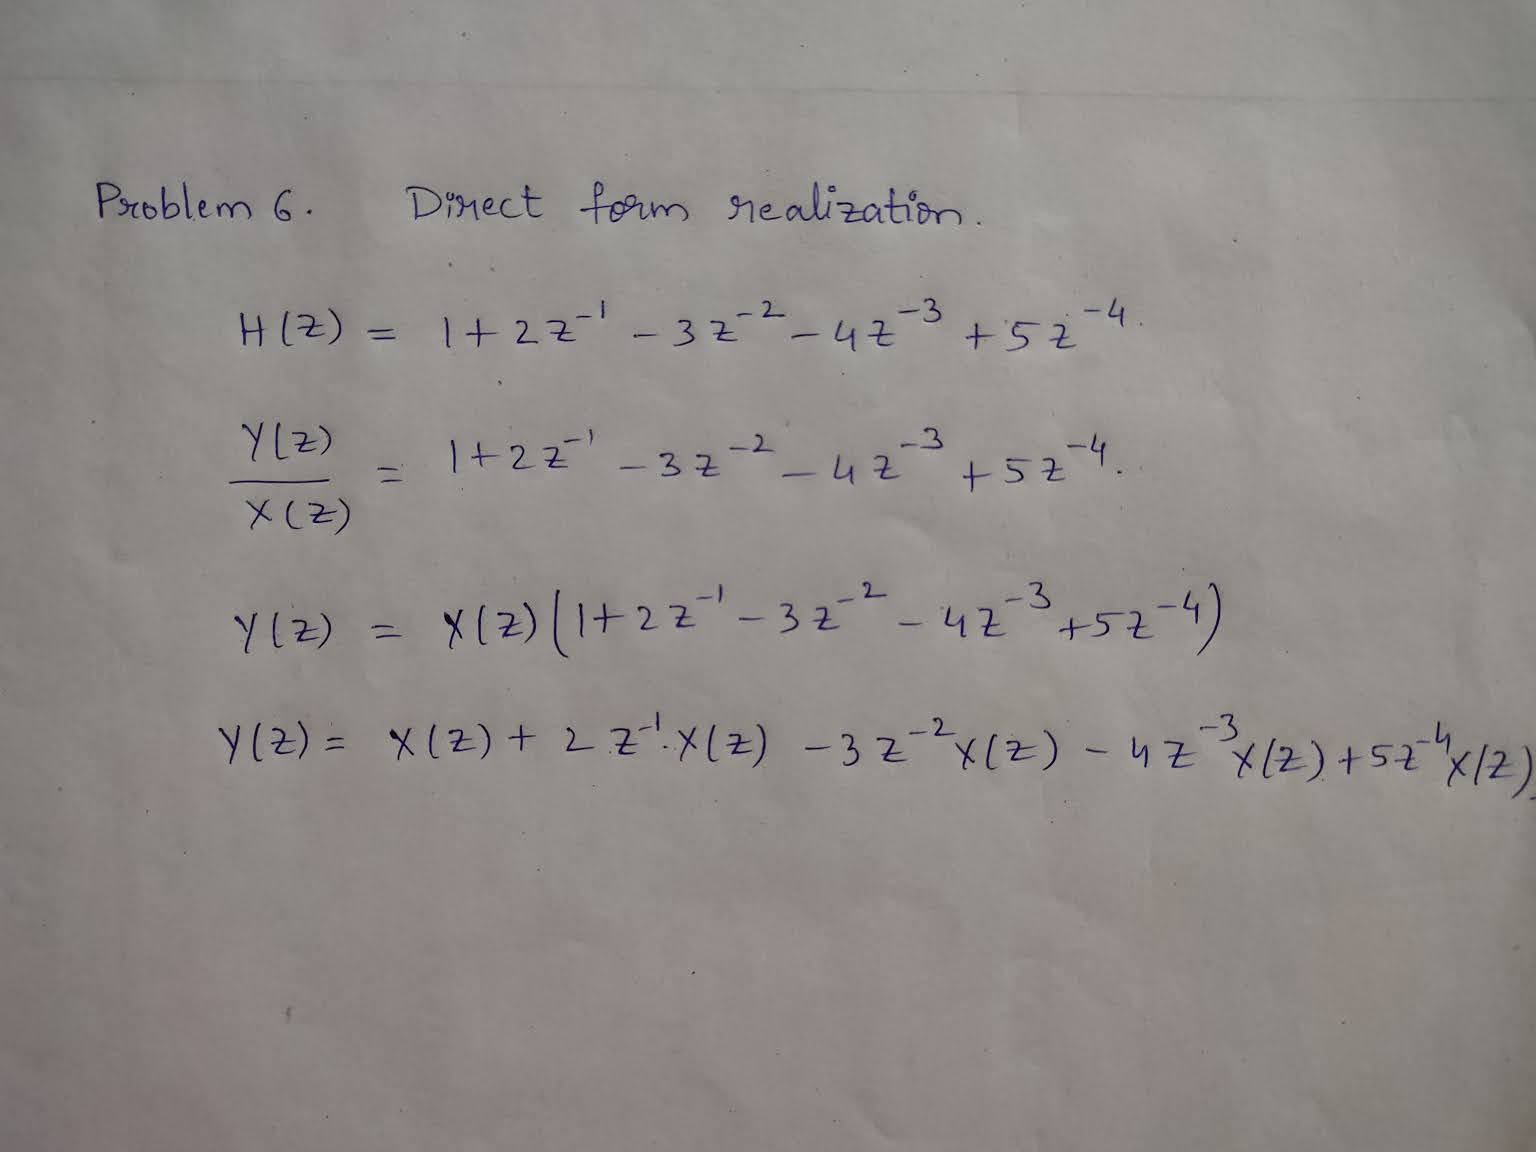 Problem 6. Direct form realization.
H(z) = 1+2z⁻¹ -3z⁻² -4z⁻³ +5z⁻⁴.
Y(z)/X(z) = 1+2z⁻¹ -3z⁻² -4z⁻³ +5z⁻⁴.
Y(z) = X(z)(1+2z⁻¹ -3z⁻² -4z⁻³ +5z⁻⁴)
Y(z) = X(z) + 2z⁻¹.X(z) -3z⁻²X(z) -4z⁻³X(z) +5z⁻⁴X(z).